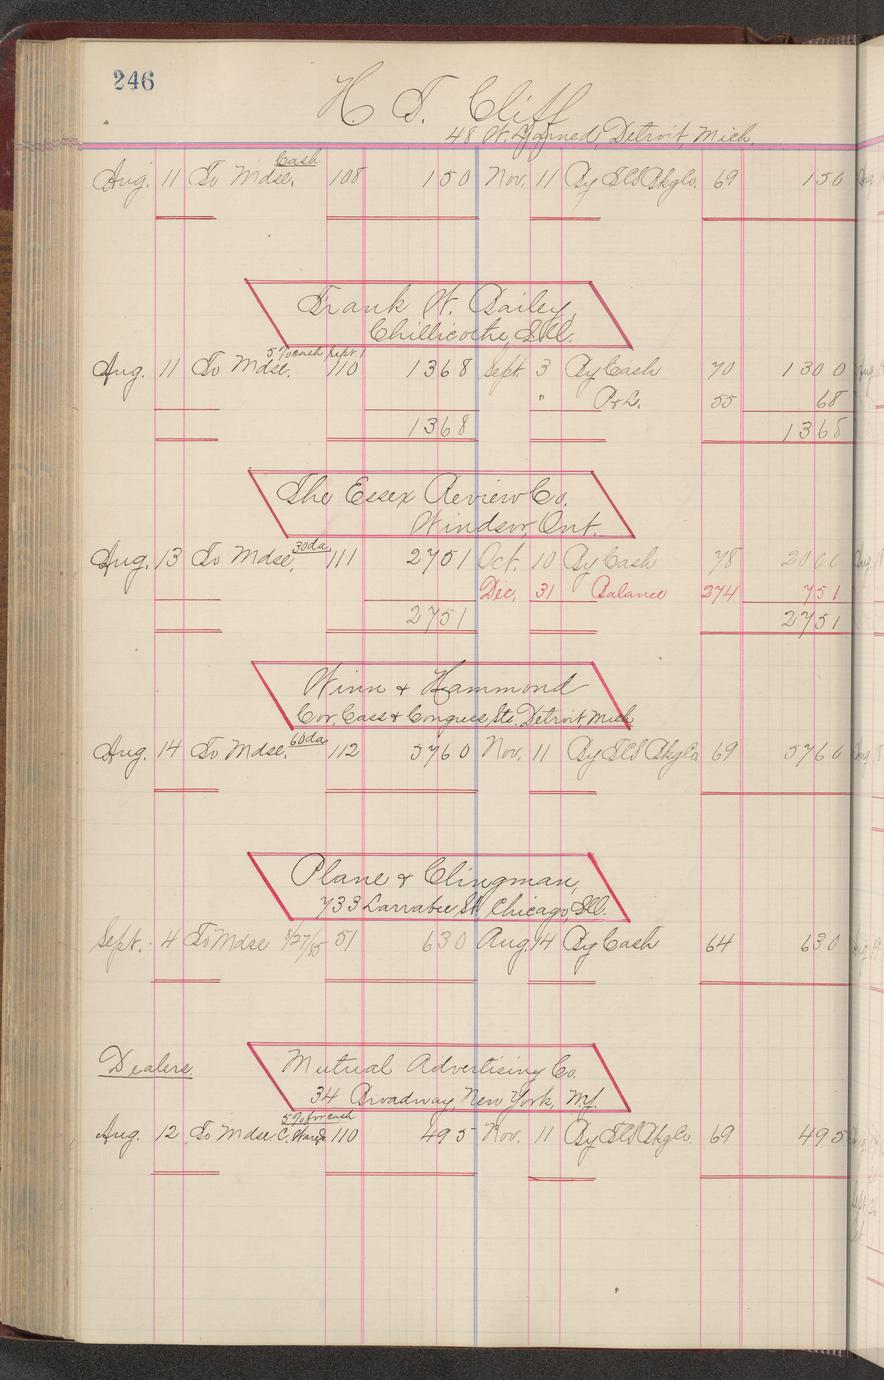 246
H. T. Cliff
48 W. Larned, Detroit, Mich.
Cash
Aug. 11 To Mdse. 108 150 Nov. 11 By Bkg Co. 69 150
Frank W. Bailey,
Chillicothe, Ill.
5% cash Sept. 1
Aug. 11 To Mdse. 110 1368 Sept. 3 By Cash 70 1300
" P & L. 55 68
1368 1368
The Essex Review Co.
Windsor, Ont.
30 da.
Aug. 13 To Mdse. 111 2751 Oct. 10 By Cash 78 2000
Dec. 31 Balance 274 751
2751 2751
Winn & Hammond
Cor. Cass & Congress Sts. Detroit Mich
60 da
Aug. 14 To Mdse. 112 5760 Nov. 11 By Bkg Co 69 5760
Plane & Clingman,
733 Larrabee St. Chicago, Ill.
Sept. 4 To Mdse 51 630 Aug. 14 By Cash 64 630
Dealers.
Mutual Advertising Co.
34 Broadway, New York, N.Y.
5% for cash
Aug. 12 To Mdse. 110 495 Nov. 11 By Bkg Co. 69 495